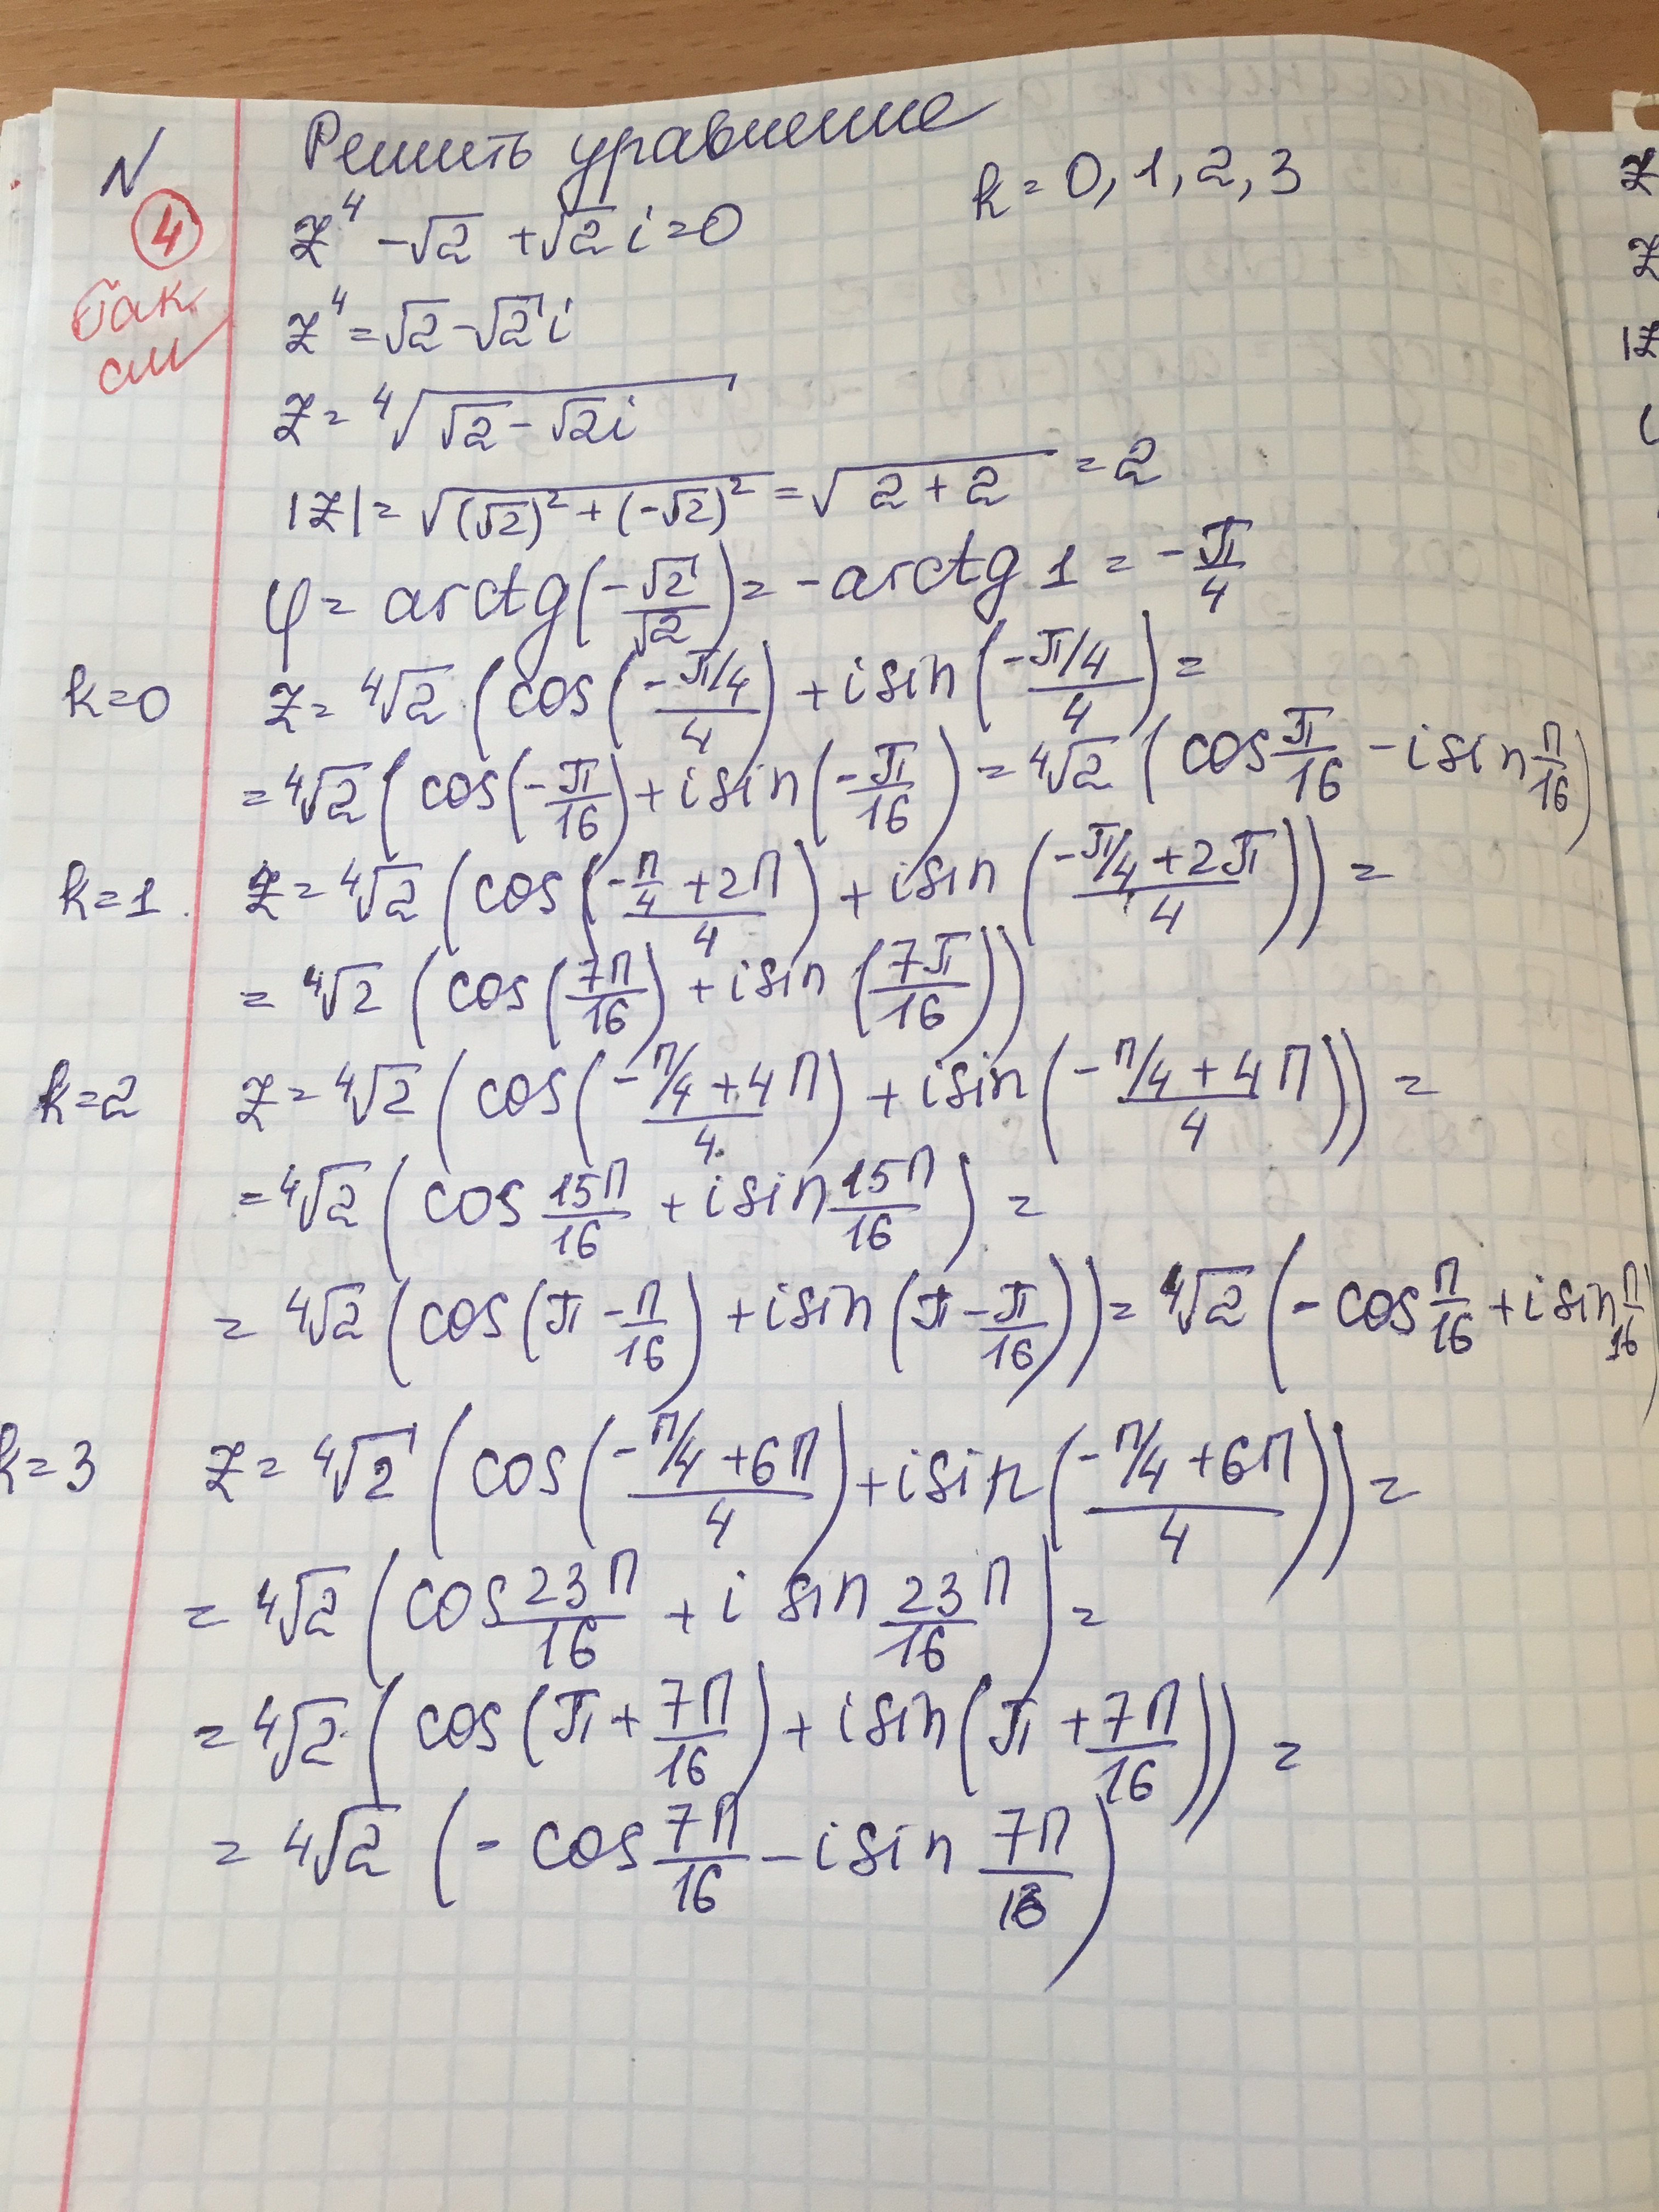 N Решить уравнение
k = 0, 1, 2, 3
④ z⁴ - √2 + √2 i = 0
z⁴ = √2 - √2 i
z = ⁴√(√2 - √2i)
|z| = √((√2)² + (-√2)²) = √(2 + 2) = 2
φ = arctg(-√2/√2) = -arctg 1 = -π/4
k=0 z = ⁴√2 (cos(-π/4/4) + i sin(-π/4/4) =
= ⁴√2 (cos(-π/16) + i sin(-π/16) = ⁴√2 (cos π/16 - i sin π/16)
k=1. z = ⁴√2 (cos(-π/4 + 2π/4) + i sin((-π/4 + 2π)/4)) =
= ⁴√2 (cos(7π/16) + i sin(7π/16))
k=2 z = ⁴√2 (cos((-π/4 + 4π)/4) + i sin((-π/4 + 4π)/4)) =
= ⁴√2 (cos 15π/16 + i sin 15π/16) =
= ⁴√2 (cos(π - π/16) + i sin(π - π/16)) = ⁴√2 (- cos π/16 + i sin π/16)
k=3 z = ⁴√2 (cos((-π/4 + 6π)/4) + i sin((-π/4 + 6π)/4)) =
= ⁴√2 (cos 23π/16 + i sin 23π/16) =
= ⁴√2 (cos(π + 7π/16) + i sin(π + 7π/16)) =
= ⁴√2 (- cos 7π/16 - i sin 7π/16)